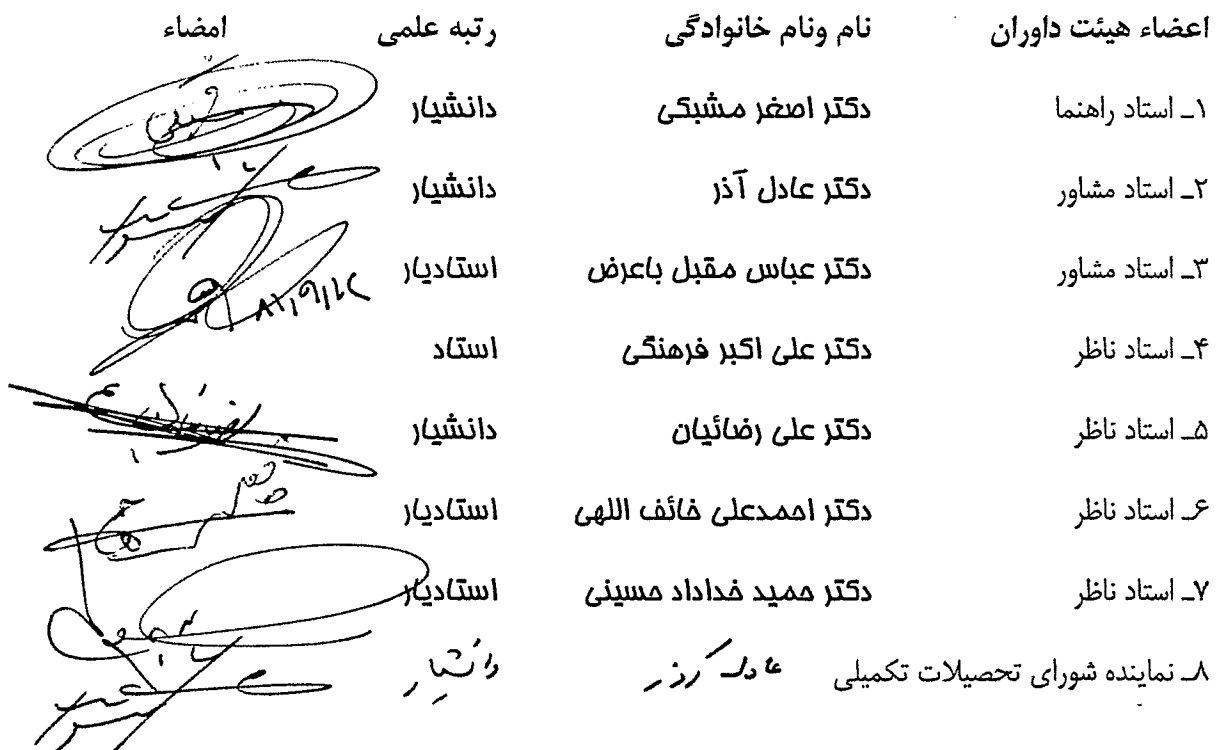 اعضاء هیئت داوران نام ونام خانوادگی رتبه علمی امضاء
۱ـ استاد راهنما دکتر اصغر مشبکی دانشیار
۲ـ استاد مشاور دکتر عادل آذر دانشیار
۳ـ استاد مشاور دکتر عباس مقبل باعرض استادیار
۴ـ استاد ناظر دکتر علی اکبر فرهنگی استاد
۵ـ استاد ناظر دکتر علی رضائیان دانشیار
۶ـ استاد ناظر دکتر احمدعلی خائف اللهی استادیار
۷ـ استاد ناظر دکتر حمید خداداد حسینی استادیار
۸ـ نماینده شورای تحصیلات تکمیلی عادل آذر دانشیار